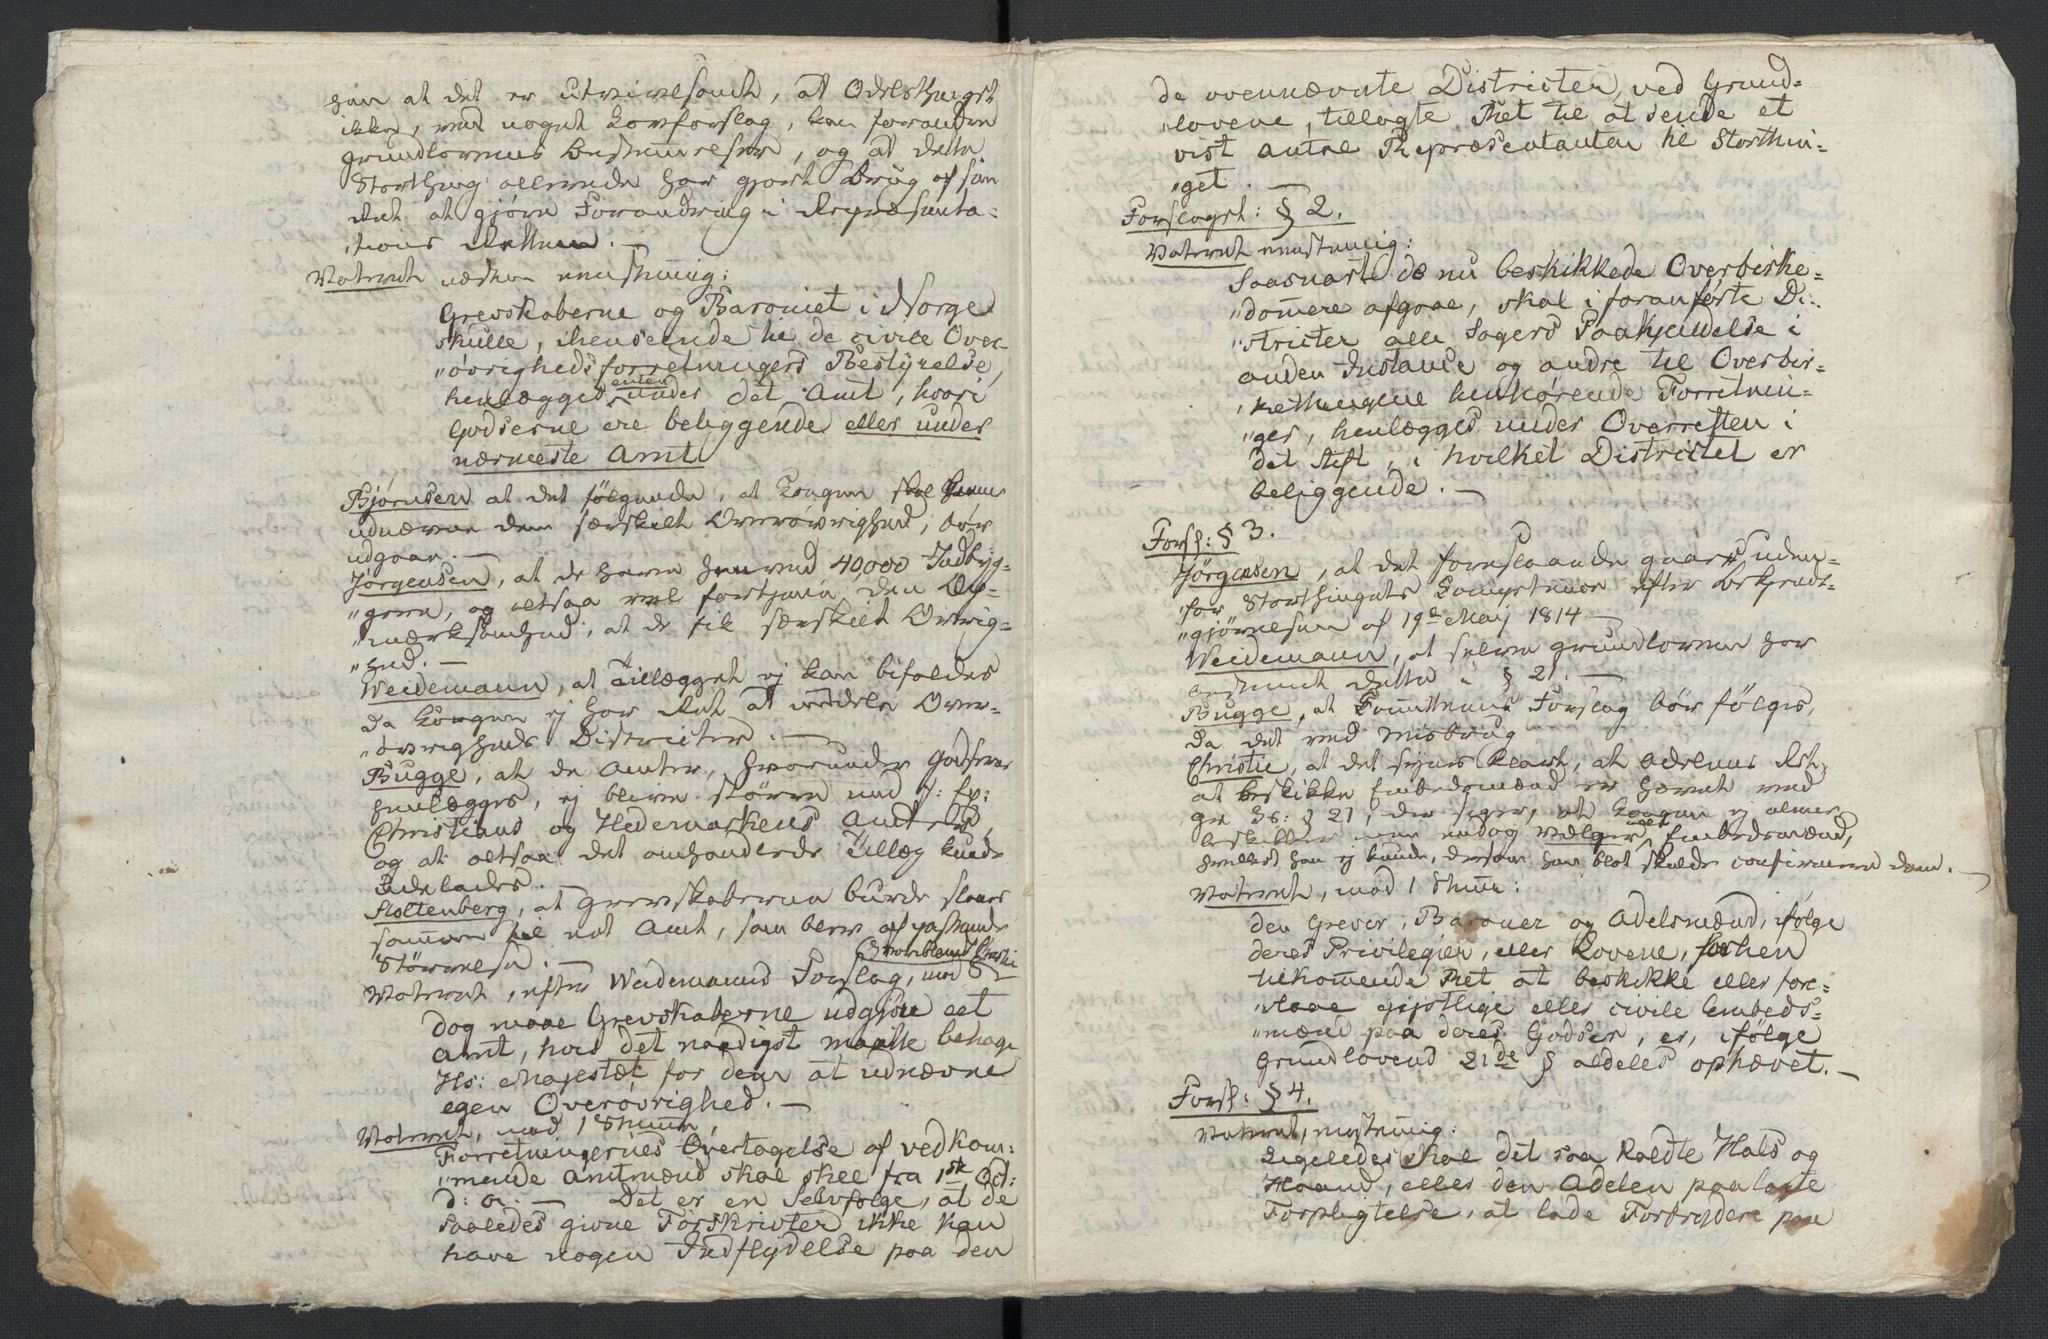 han at det er utvivlsomt, at Odelsthinget
ikke, ved noget Lovforslag, kan forandre
Grundlovens Bestemmelser, og at dette
Storthing allerede har gjort Brug af sin
Ret at gjøre Forandring i Repræsenta-
"tions Retten. —
Voteret næsten eenstemig:
Grevskaberne og Baroniet i Norge
skulle, ihenseende til de civile Over-
"øvrigheds forretningers Bestyrelse,
henlægges enten under det Amt, hvori
Godserne ere beliggende eller under
nærmeste Amt
Bjørnsen at det følgende, at Kongen skal kunne
udnævne dem særskilt Overøvrighed, bør
udgaae. —
Jørgensen, at de have henved 40,000 Indbyg-
"gere, og altsaa vel fortjene den Op-
"mærksomhed, at de fik særskilt Øvrig-
"hed. —
Weidemann, at Tillægget ej kan bifaldes
da Kongen ej har Ret at inddele Over-
"øvrigheds Districter. —
Bugge, at de Amter, hvorunder Godserne
henlægges, ej blive større end f: Ex:
Christians og Hedemarkens Amter,
og at altsaa det omhandlede Tillæg kunde
udelades. —
Stoltenberg, at Grevskaberne burde slaaes
sammen til eet Amt, som blev af passende
Størrelse. —
Voteret, efter Weidemanns Forslag, mod
dog maae Grevskaberne udgjøre eet
Amt, hvis det naadigst maatte behage
Hs: Majestæt for dem at udnævne
egen Overøvrighed. —
Voteret, mod 1 Stemme,
Forretningernes Overtagelse af vedkom-
"mende Amtmænd skal skee fra 1ste Oct:
d: A. — Det er en Selvfølge, at de
saaledes givne Forskrivter ikke kan
have nogen Indflydelse paa den
de ovennævnte Districter, ved Grund-
"lovene, tillagte Ret til at sende et
vist Antal Repræsentanter til Storthin-
"get. —
Forslaget: § 2.
Voteret eenstemig:
Saasnart de nu beskikkede Overbirke-
"domere afgaae, skal i foranførte Di-
"stricter alle Sagers Paakjendelse i
anden Instance og andre til Overbir-
"kethingene henhørende Forretnin-
"ger, henlægges under Overretten i
det Stift, i hvilket Districtet er
beliggende. —
Forsl: § 3.
Jørgensen, at det foreslaaede gaaer uden-
"for Storthingets Competence efter Bekjendt-
"gjørelsen af 19de Maj 1814 —
Weidemann, at selve Grundloven har
bestemt dette i § 21. —
Bugge, at Committeens Forslag bør følges,
da det ved Misbrug
Christie, at det synes klart, at Adelens Ret
at beskikke Embedsmænd er hævet ved
Gr: Lov: § 21, der siger, at Kongen ej alene
beskikker men endog vælger alle Embedsmænd,
hvilket han ej kunde, dersom han blot skulde confirmere dem. —
Voteret, mod 1 Stemme:
den Grever, Baroner og Adelsmænd, ifølge
deres Privilegier, eller Lovene, forhen
tilkommende Ret at beskikke eller fore-
"slaae gejstlige eller civile Embeds-
"mænd paa deres Godser, er, ifølge
Grundlovens 21de § aldeles ophævet. —
Forsl: § 4.
Voteret, eenstemig:
Ligeledes skal det saa kaldte Hals og
Haand, eller den Adelen paalagte
Forpligtelse, at lade Forbrydere paa